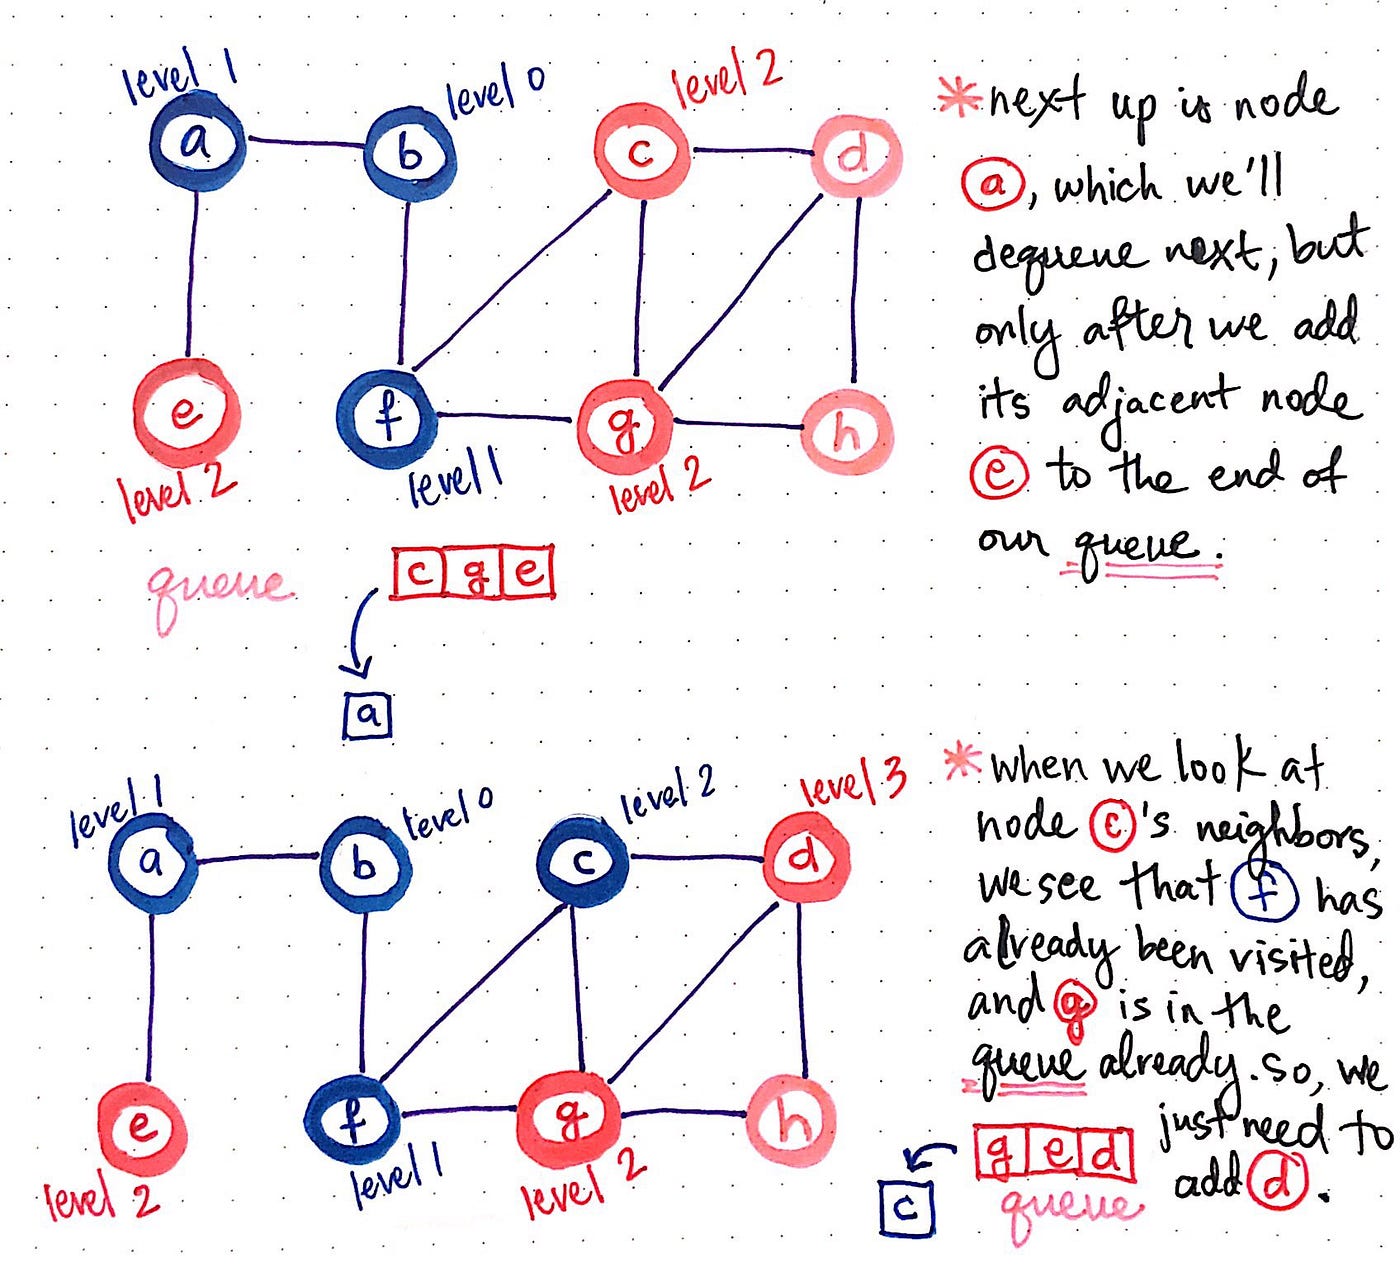 level 1
level 0
level 2
a
b
c
d
e
f
g
h
level 2
level 1
level 2
queue
c g e
a
*next up is node
a, which we'll
dequeue next, but
only after we add
its adjacent node
e to the end of
our queue.
level 1
level 0
level 2
level 3
a
b
c
d
e
f
g
h
level 2
level 1
level 2
*when we look at
node c's neighbors,
we see that f has
already been visited,
and g is in the
queue already. so, we
just need to
add d.
g e d
c
queue